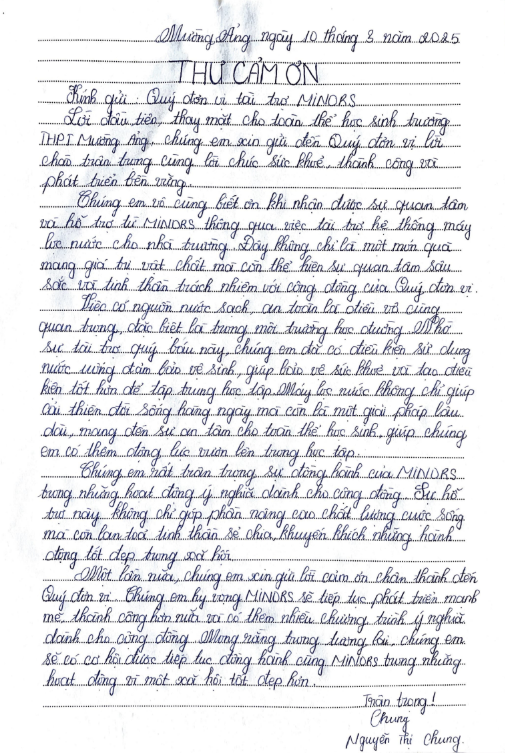 Mường Ảng ngày 10 tháng 3 năm 2025
THƯ CẢM ƠN
Kính gửi : Quý đơn vị tài trợ MINORS
Lời đầu tiên, thay mặt cho toàn thể học sinh trường
THPT Mường Ảng, chúng em xin gửi đến Quý đơn vị lời
chào trân trọng cùng lời chúc sức khoẻ, thành công và
phát triển bền vững.
Chúng em vô cùng biết ơn khi nhận được sự quan tâm
và hỗ trợ từ MINORS thông qua việc tài trợ hệ thống máy
lọc nước cho nhà trường. Đây không chỉ là một món quà
mang giá trị vật chất mà còn thể hiện sự quan tâm sâu
sắc và tinh thần trách nhiệm với cộng đồng của Quý đơn vị.
Việc có nguồn nước sạch, an toàn là điều vô cùng
quan trọng, đặc biệt là trong môi trường học đường. Nhờ
sự tài trợ quý báu này, chúng em đã có điều kiện sử dụng
nước uống đảm bảo vệ sinh, giúp bảo vệ sức khoẻ và tạo điều
kiện tốt hơn để tập trung học tập. Máy lọc nước không chỉ giúp
cải thiện đời sống hàng ngày mà còn là một giải pháp lâu
dài, mang đến sự an tâm cho toàn thể học sinh, giúp chúng
em có thêm động lực vươn lên trong học tập.
Chúng em rất trân trọng sự đồng hành của MINORS
trong những hoạt động ý nghĩa dành cho cộng đồng. Sự hỗ
trợ này không chỉ góp phần nâng cao chất lượng cuộc sống
mà còn lan toả tinh thần sẻ chia, khuyến khích những hành
động tốt đẹp trong xã hội.
Một lần nữa, chúng em xin gửi lời cảm ơn chân thành đến
Quý đơn vị. Chúng em hy vọng MINORS sẽ tiếp tục phát triển mạnh
mẽ, thành công hơn nữa và có thêm nhiều chương trình ý nghĩa
dành cho cộng đồng. Mong rằng trong tương lai, chúng em
sẽ có cơ hội được tiếp tục đồng hành cùng MINORS trong những
hoạt động vì một xã hội tốt đẹp hơn.
Trân trọng!
Chung
Nguyễn Thị Chung.